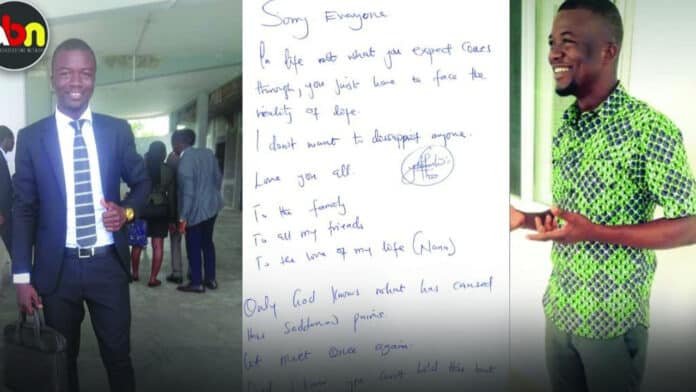 abn
Sorry Everyone
In life not what you expect comes
through, you just have to face the
reality of life.
I don't want to dissapoint anyone.
Love you all.
To the family
To all my friends
To the love of my life (Nana)
Only God knows what has caused
this
Let meet once again.
I know you can't hold this but